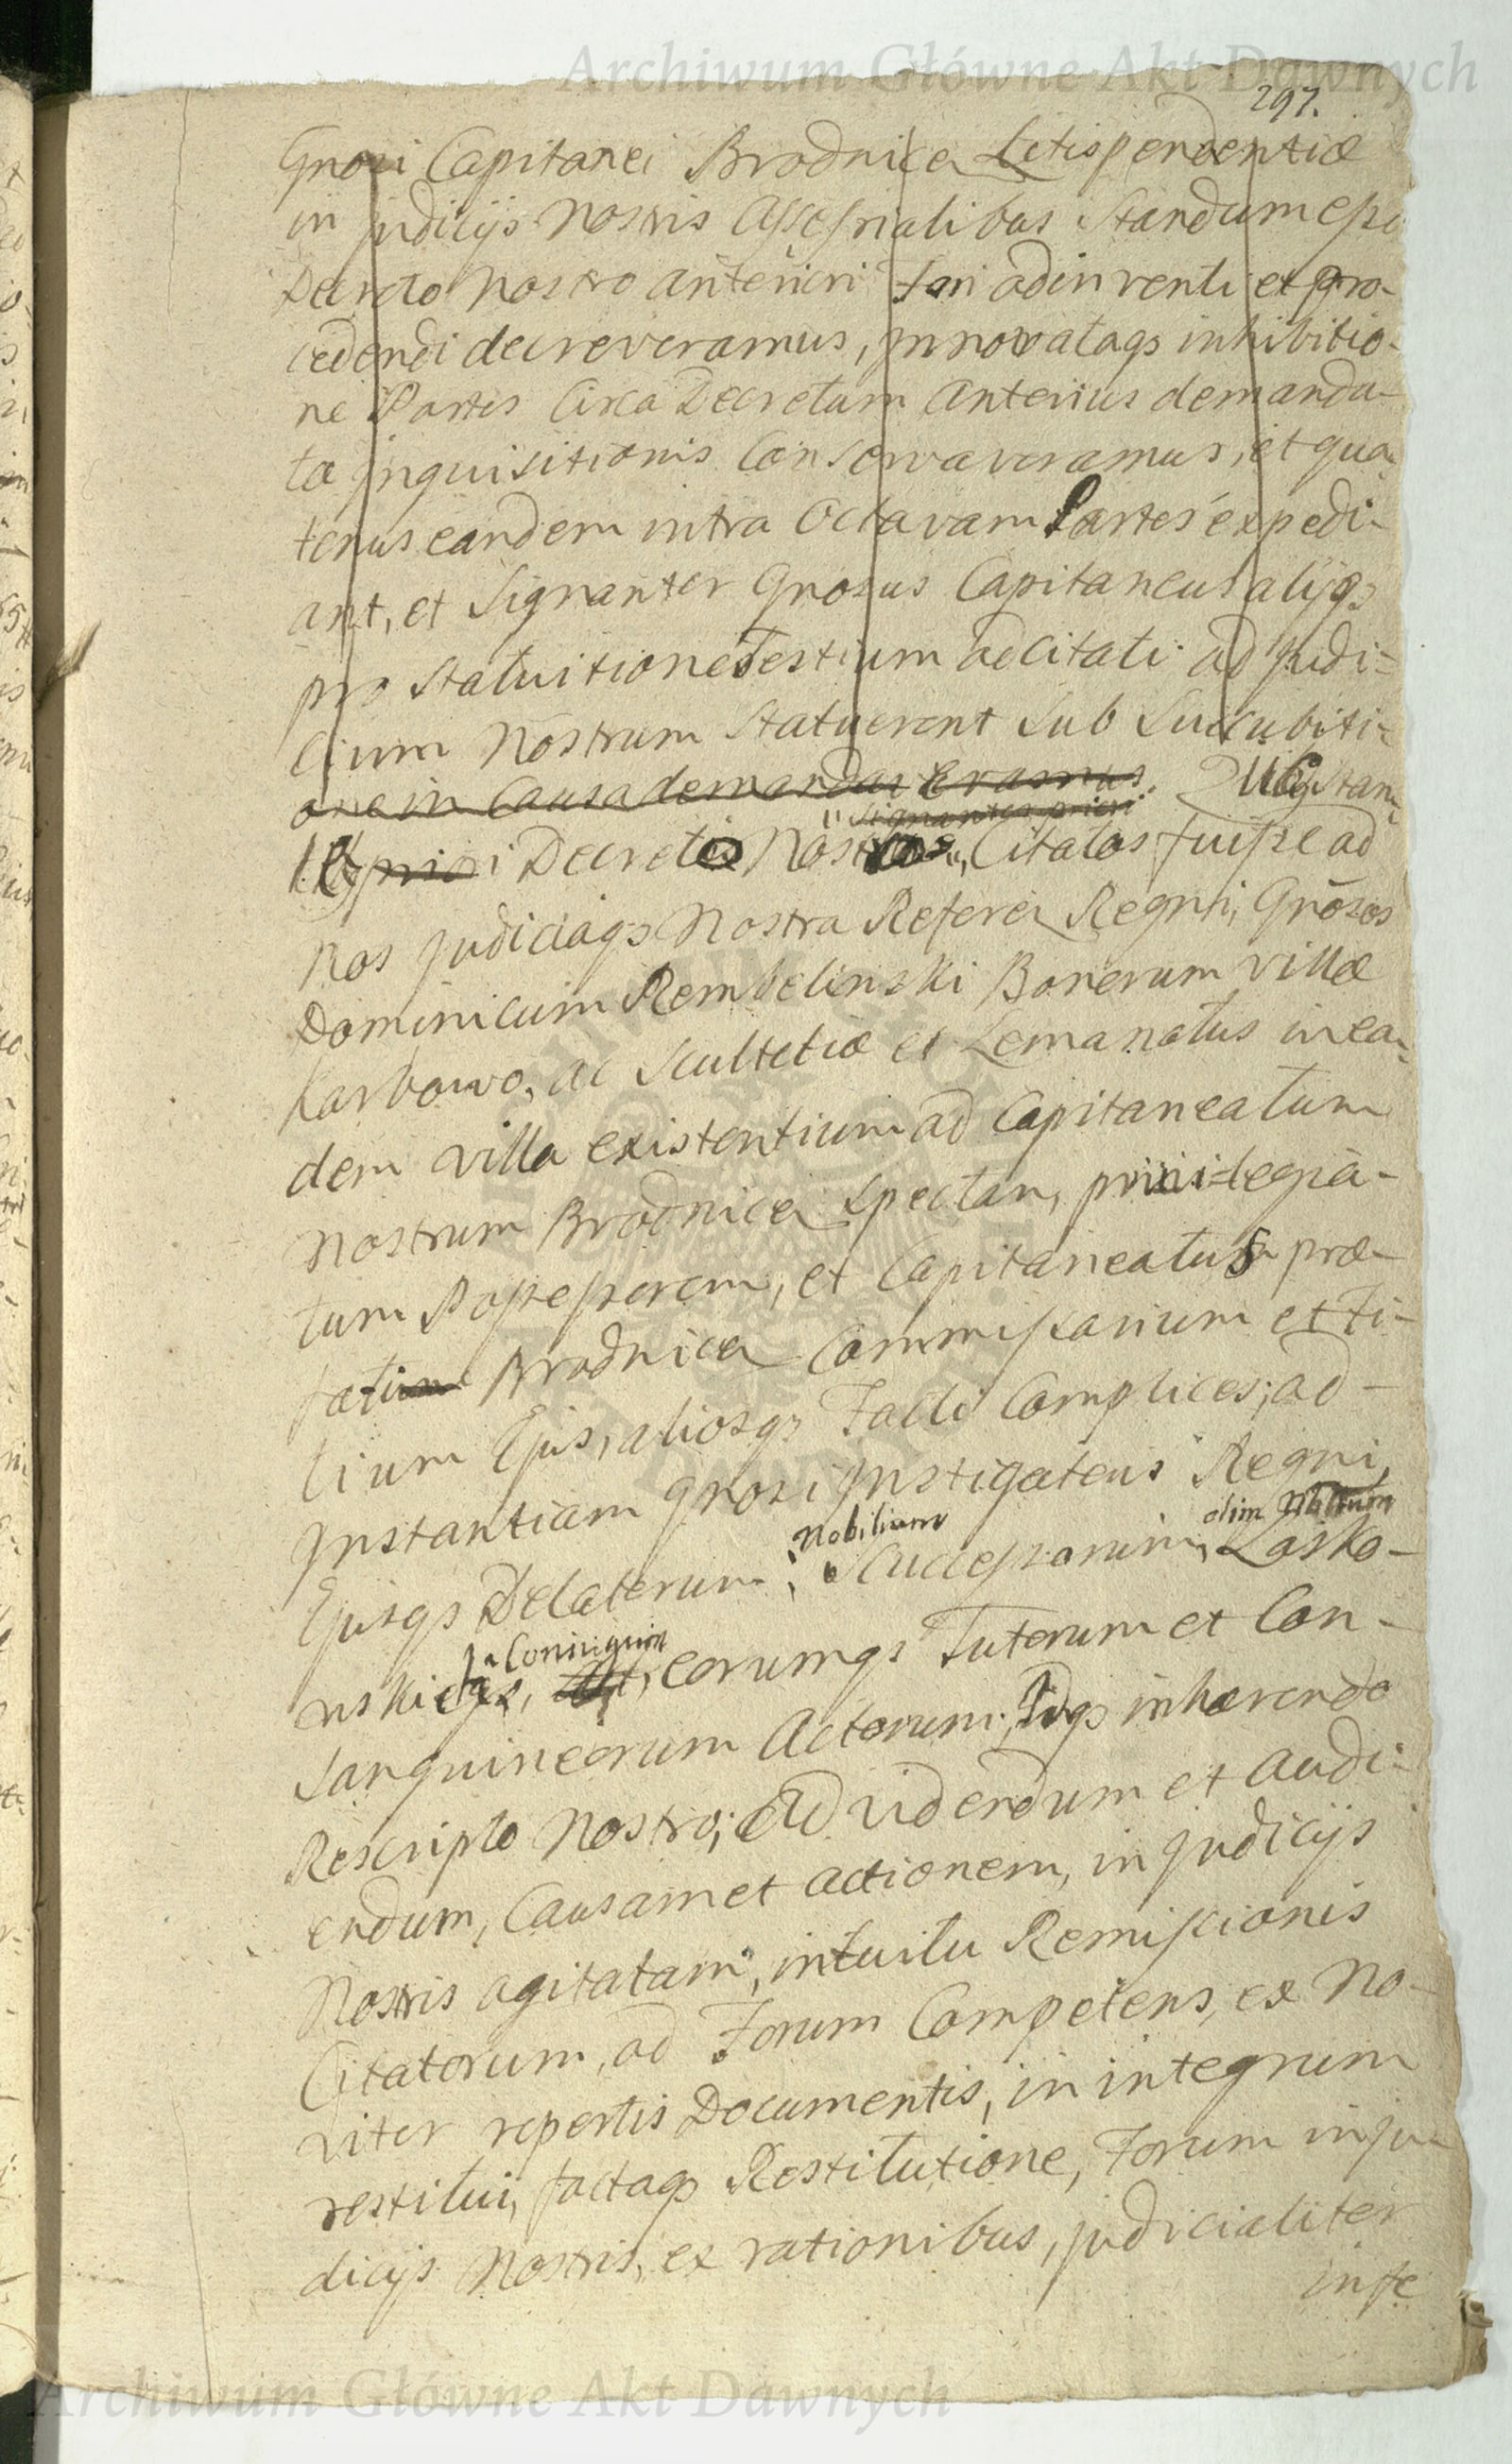 Archiwum Główne Akt Dawnych
297.
Grosi Capitanei Brodnicen Litispendentiæ
in Judicijs Nostris Assessrialibus standum esse
Decreto Nostro anteriori Fori adinventi et pro-
cedendi decreveramus, Innovataqs inhibitio-
ne Partes Circa Decretum Anterius demanda-
tæ Inquisitionis Conservaveramus, et qua-
tenus eandem intra Octavam Partes expedi-
ant, et Signanter Grosus Capitaneus alijqs
pro Statuitione Testium adcitati ad Judi-
cium Nostrum Statuerent sub Succubiti-
one in Causa demandaveramus.
signanter priori
Decreto Citatos fuisse ad
Nos Judiciaqs Nostra Referen Regni, Grosos
Dominicum Rembelinski Bonorum Villæ
Karbowo, ac Scultetiæ et Lemanatus in ea-
dem villa existentium ad Capitaneatum
Nostrum Brodnicen spectan, privilegia-
tum Possessorem, et Capitaneatus præ-
fati Brodnicen Commissarium et Fi-
lium Ejus, aliosqs Facti Complices; ad
Instantiam Grosi Instigatoris Regni,
Nobilium olim
Ejusqs Delatorum, Successorum, Lasko-
Coniugum
eorumqs Tutorum et Con-
sanguineorum Actorum; Idqs inhærendo
Rescripto Nostro; Ad videndum et audi-
endum, Causam et actionem, in Judicijs
Nostris agitatam, intuitu Remissionis
Citatorum, ad Forum Competens, ex No-
viter repertis Documentis, in integrum
restitui, factaqs Restitutione, Forum in Ju-
dicijs Nostris, ex rationibus, judicialiter
infe
Archiwum Główne Akt Dawnych